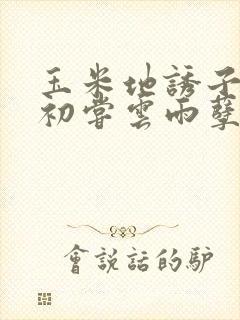 玉米地誘子
初嘗雲雨孽
會説話的驴